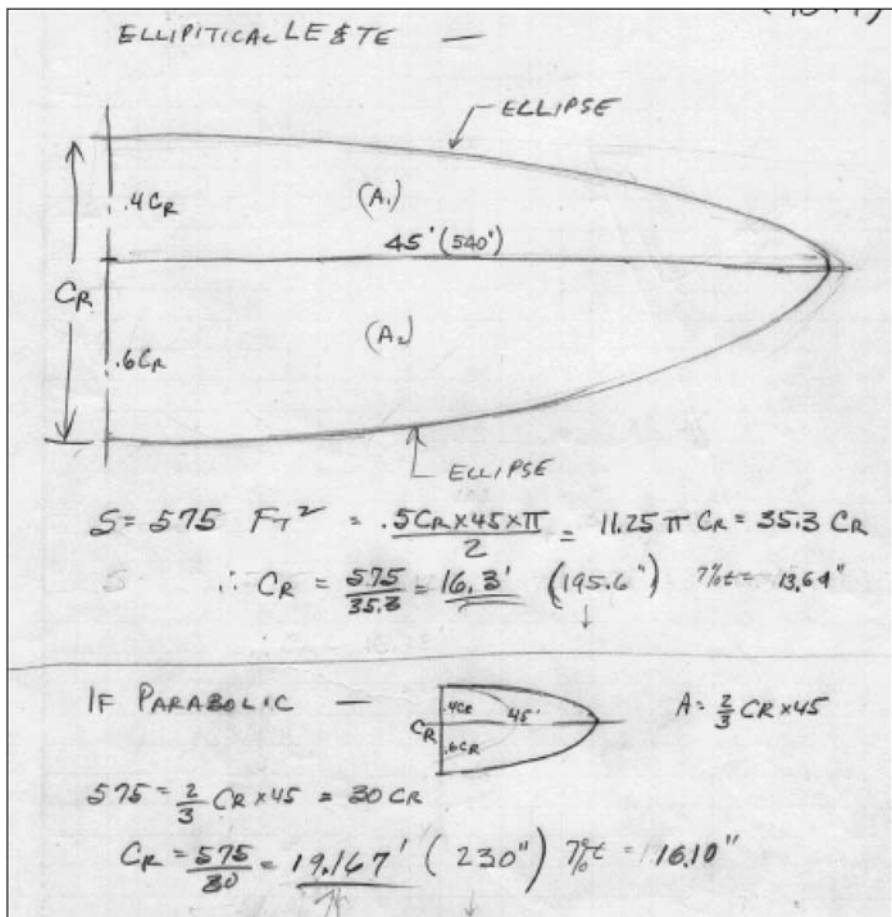 ELLIPITICAL LE & TE —
ELLIPSE
.4CR
(A1)
45' (540")
CR
(A2)
.6CR
ELLIPSE
S = 575 FT² = .5CR x 45 x π / 2 = 11.25 π CR = 35.3 CR
∴ CR = 575 / 35.3 = 16.3' (195.6") 7%t = 13.69"
IF PARABOLIC —
.4CR
45'
CR
.6CR
A = 2/3 CR x 45
575 = 2/3 CR x 45 = 30 CR
CR = 575 / 30 = 19.167' (230") 7%t = 16.10"